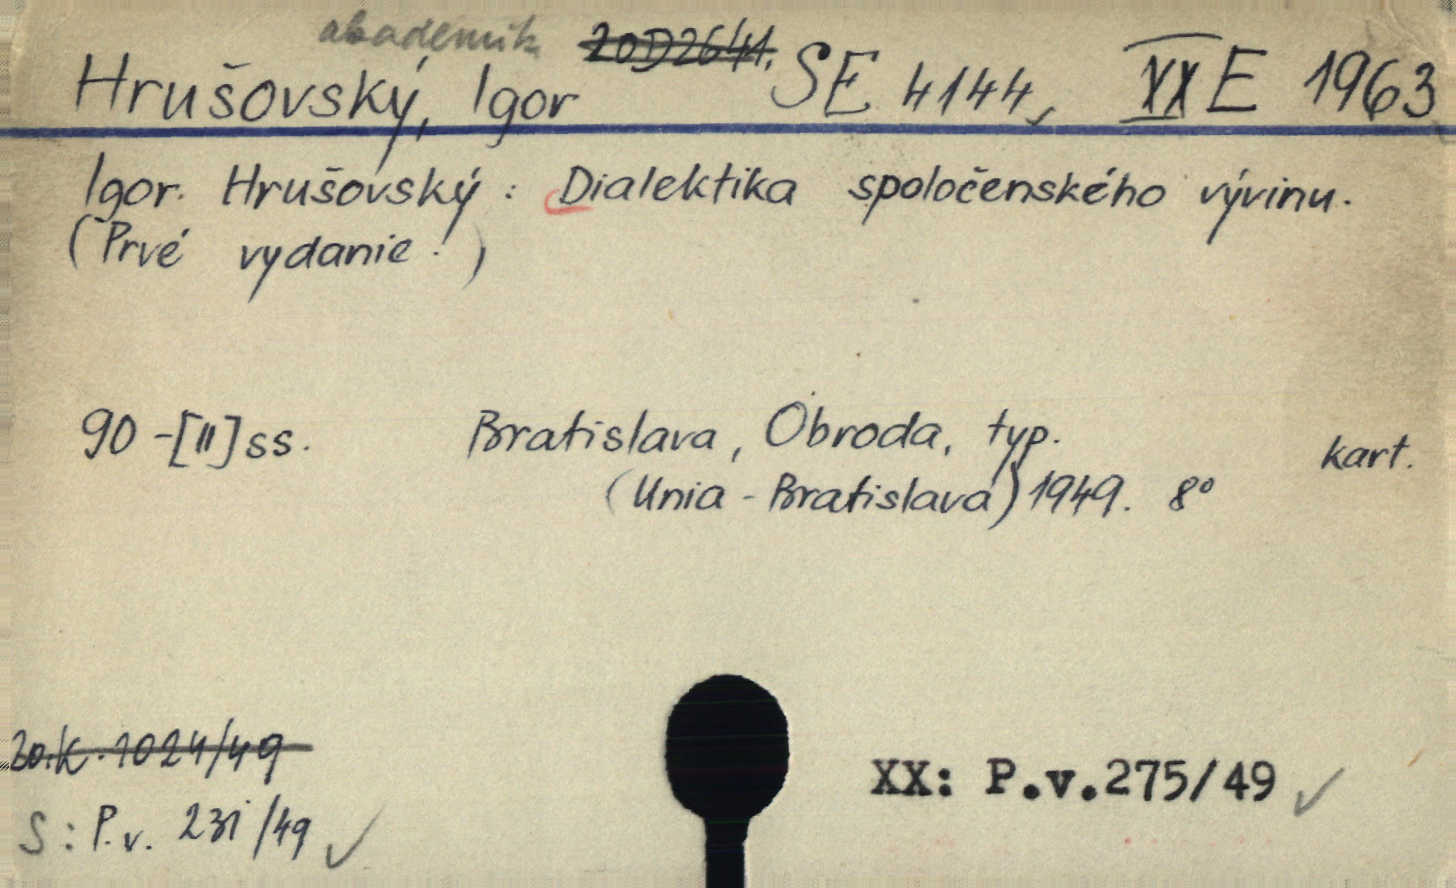 akademik
20D2641.
Hrušovský, Igor SE 4144, XX E 1963
Igor Hrušovský: Dialektika spoločenského vývinu.
(Prvé vydanie.)
90-[II]ss. Bratislava, Obroda, typ. kart.
(Unia-Bratislava) 1949. 8°
20.K.1024/49
XX: P.v.275/49 ✓
S: P.v. 231/49 ✓